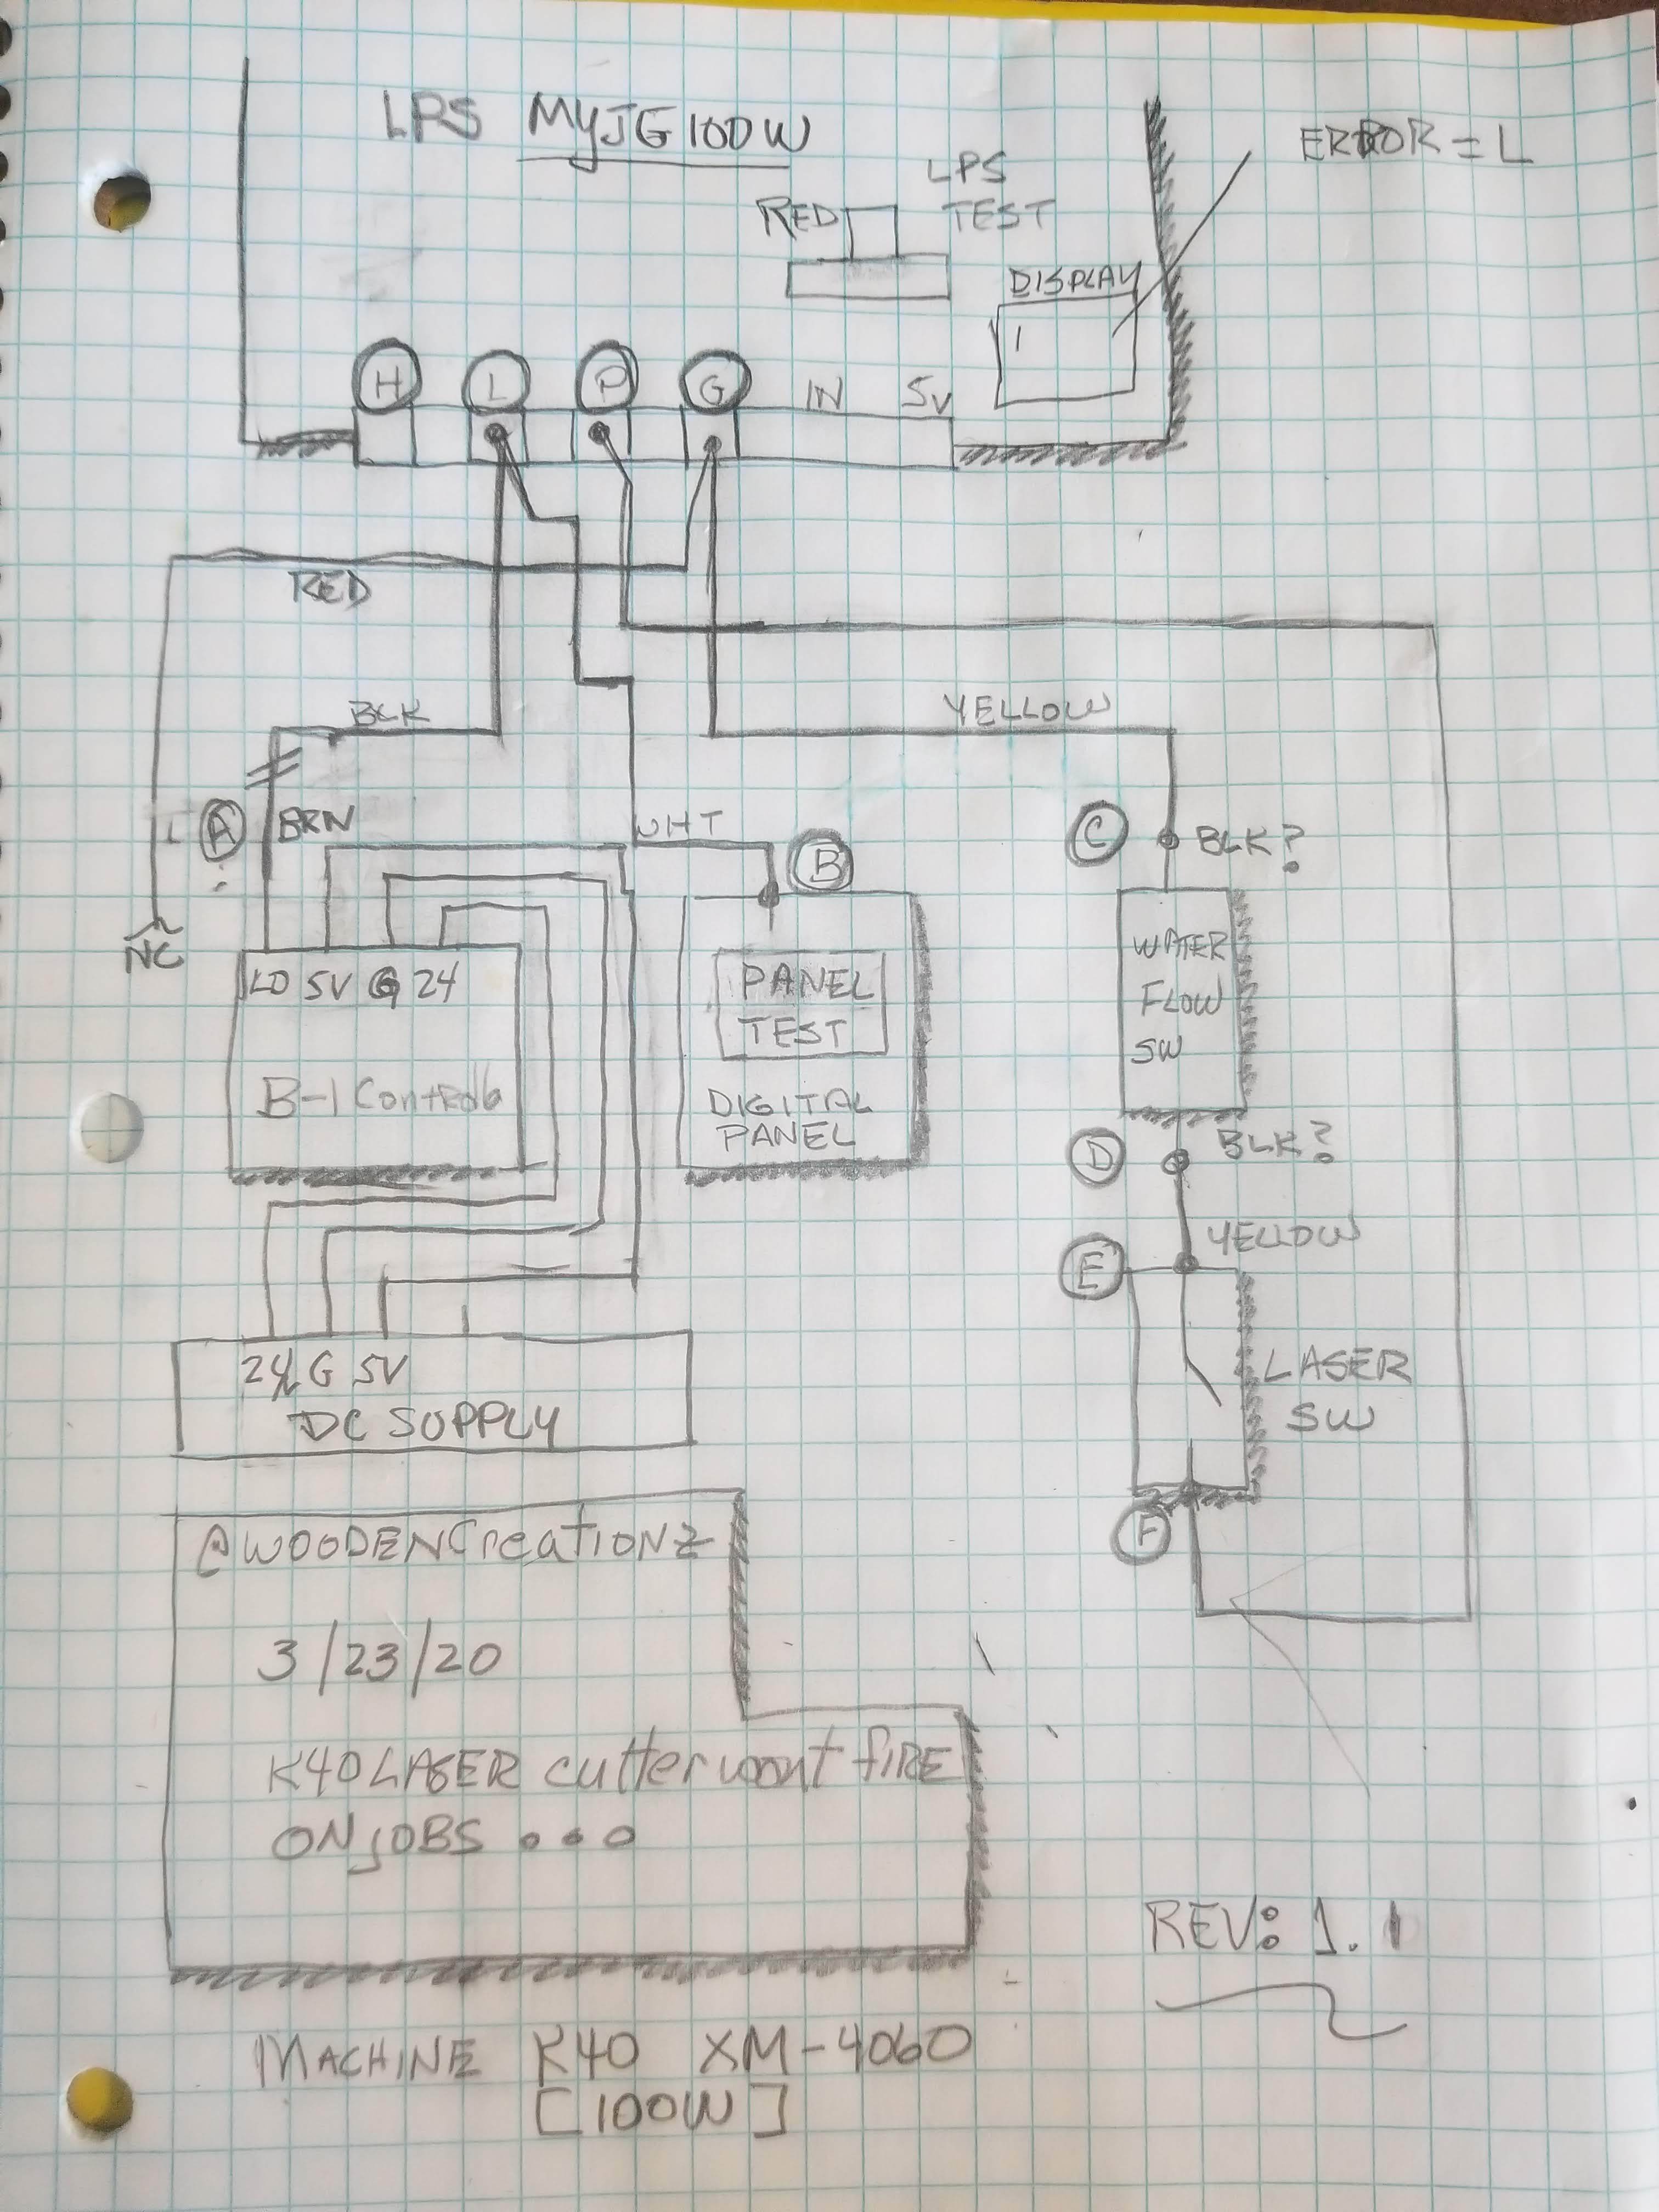 LPS MYJG100W
ERROR = L
LPS
TEST
RED
DISPLAY
H L P G IN 5V
RED
BLK
YELLOW
A
BRN
WHT
B
C
BLK?
NC
LO 5V G 24
PANEL
TEST
WATER
FLOW
SW
B-1 Control
DIGITAL
PANEL
D
BLK?
YELLOW
E
LASER
SW
24 G 5V
DC SUPPLY
F
@WOODENCreatioNZ
3/23/20
K40 LASER cutter wont fIRE
ON JOBS ...
REV: 1.1
MACHINE K40 XM-4060
[100W]